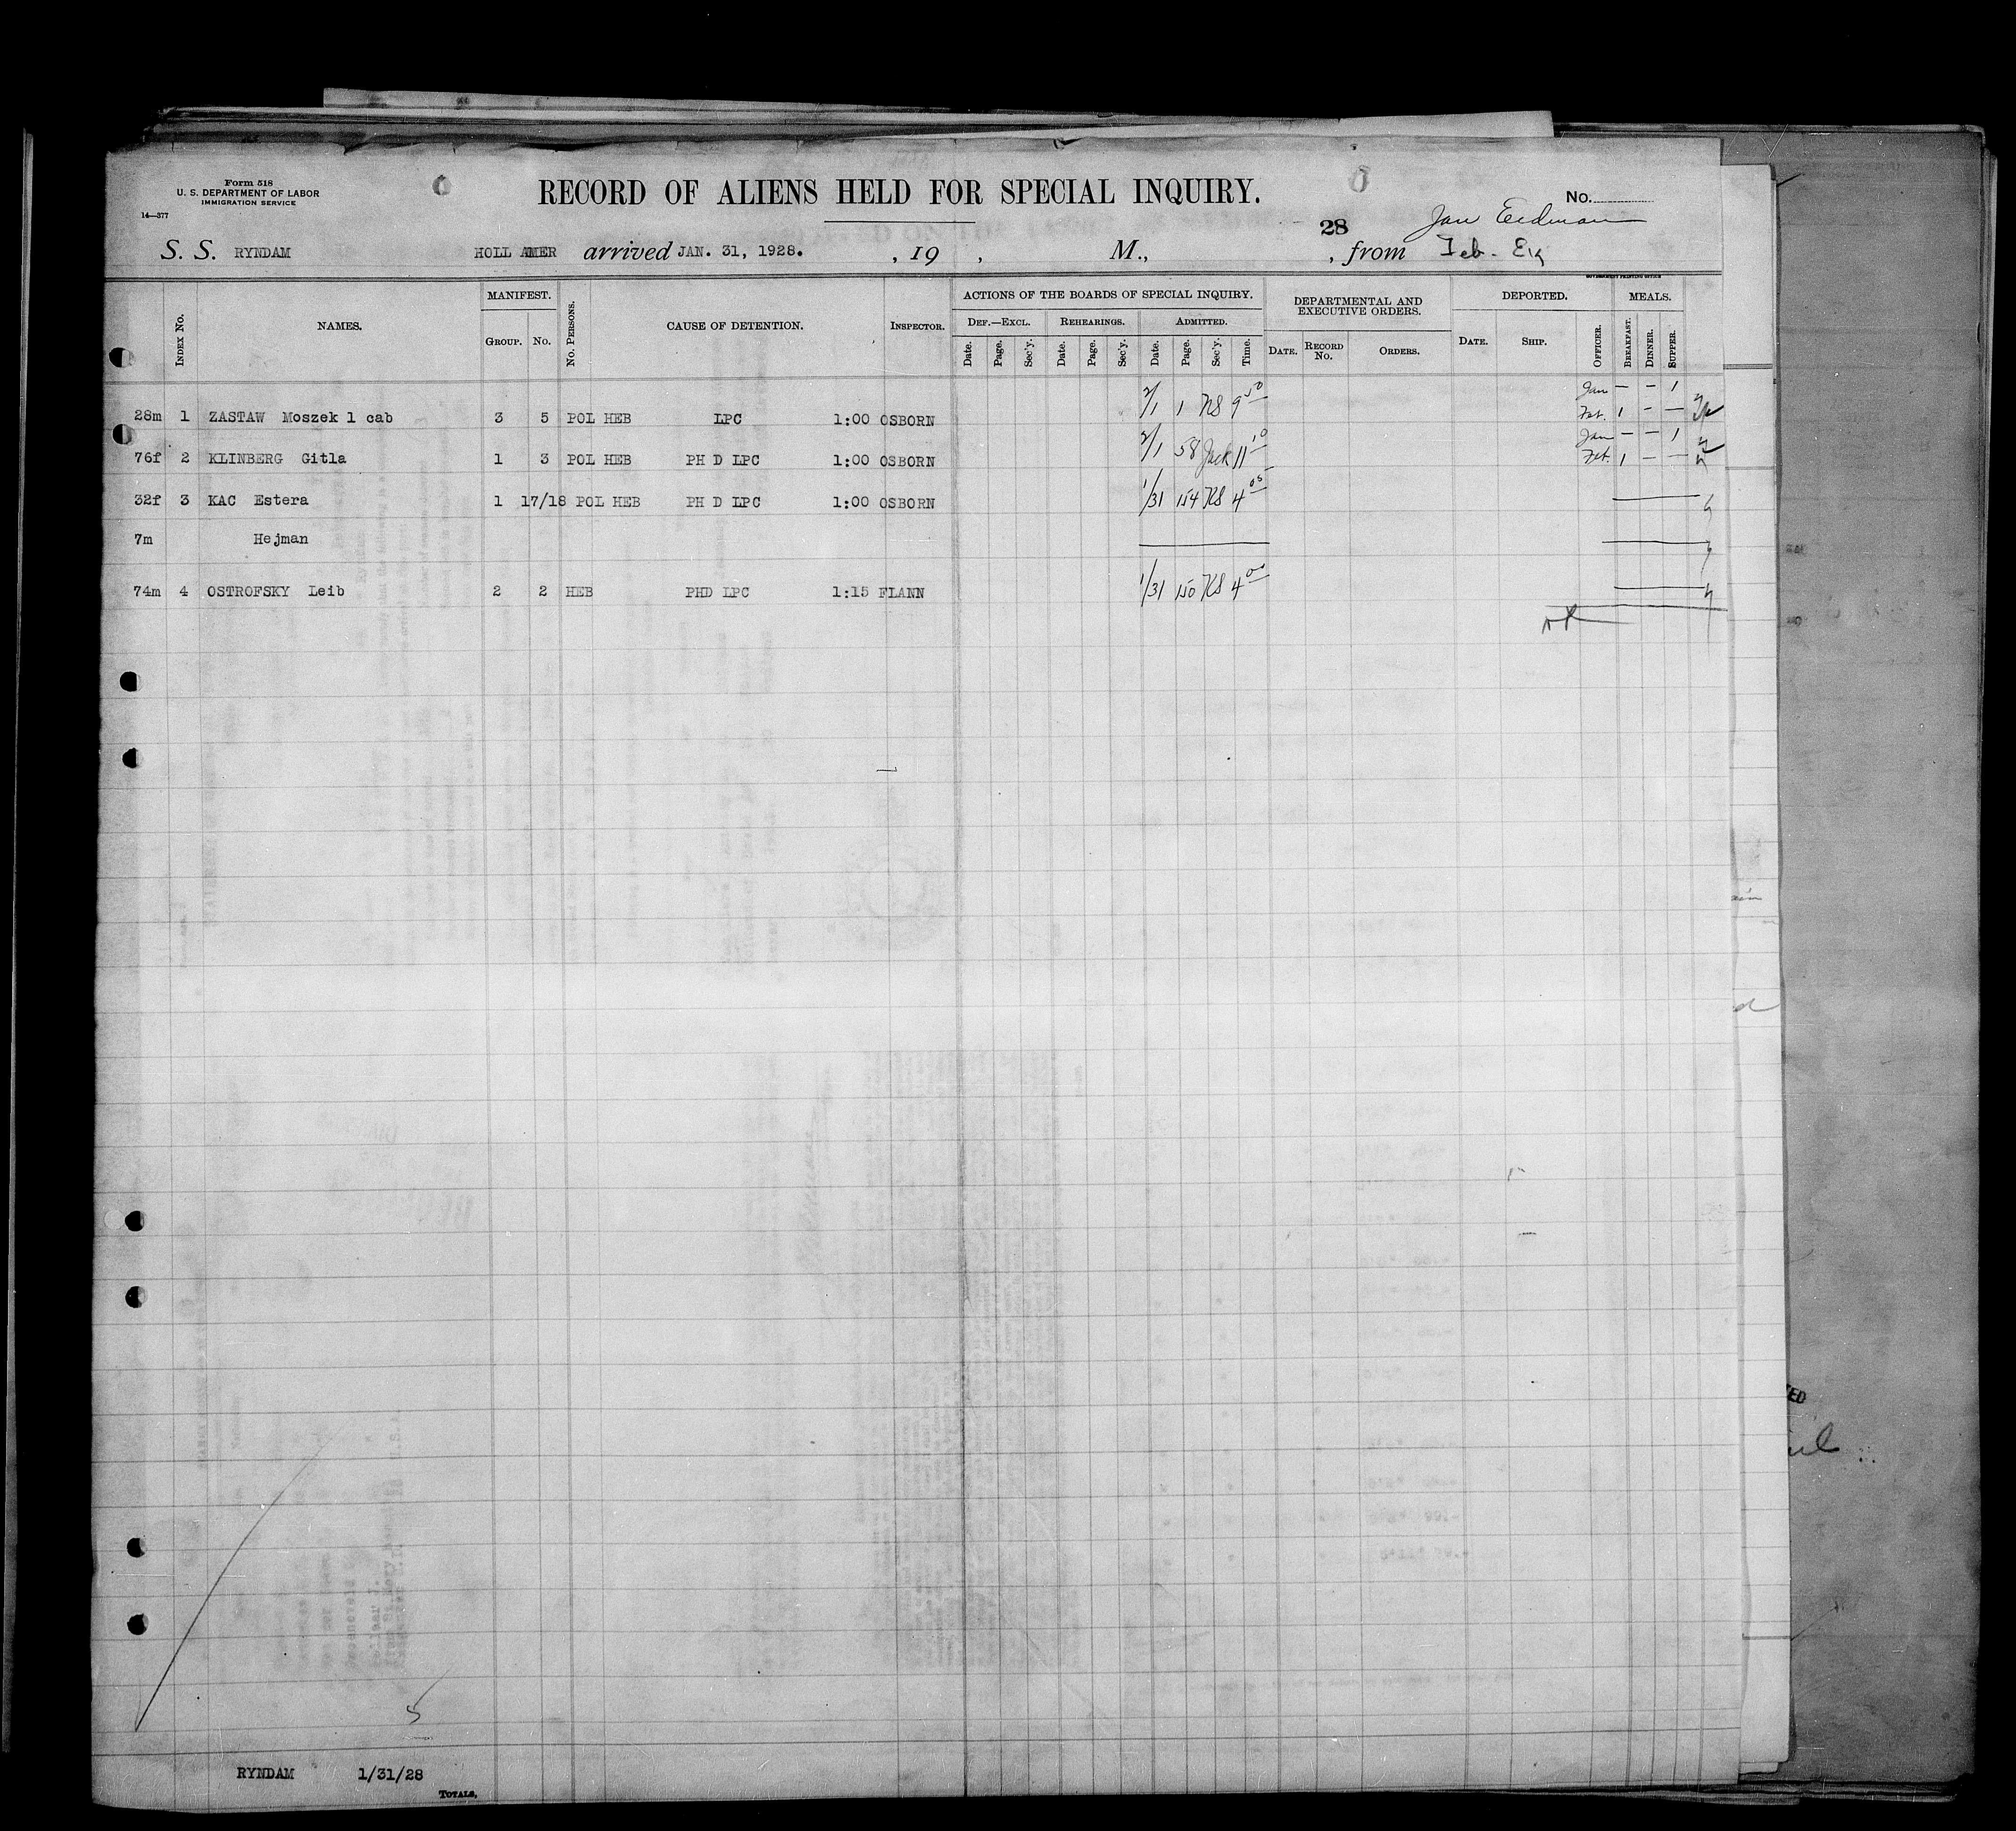 Form 518
U. S. DEPARTMENT OF LABOR
IMMIGRATION SERVICE
14—377
RECORD OF ALIENS HELD FOR SPECIAL INQUIRY.
No.
28 Jan Erdman
S. S. RYNDAM HOLL AMER arrived JAN. 31, 1928. , 19 , M., , from Feb. -
GOVERNMENT PRINTING OFFICE
INDEX No. NAMES. MANIFEST. GROUP. No. No. PERSONS. CAUSE OF DETENTION. INSPECTOR.
ACTIONS OF THE BOARDS OF SPECIAL INQUIRY.
DEF.—EXCL. REHEARINGS. ADMITTED.
Date. Page. Sec'y. Date. Page. Sec'y. Date. Page. Sec'y. Time.
DEPARTMENTAL AND EXECUTIVE ORDERS.
DATE. RECORD No. ORDERS.
DEPORTED.
DATE. SHIP. OFFICER.
MEALS.
BREAKFAST. DINNER. SUPPER.
Jan — — 1
28m 1 ZASTAW Moszek 1 cab 3 5 POL HEB LPC 1:00 OSBORN 2/1 1 KS 9 50 Feb. 1 - —
Jan — — 1
76f 2 KLINBERG Gitla 1 3 POL HEB PH D LPC 1:00 OSBORN 2/1 58 Jack 11 10 Feb. 1 — —
32f 3 KAC Estera 1 17/18 POL HEB PH D LPC 1:00 OSBORN 1/31 154 KS 4 05
7m Hejman
74m 4 OSTROFSKY Leib 2 2 HEB PHD LPC 1:15 FLANN 1/31 150 KS 4 00
5
RYNDAM 1/31/28
TOTALS,